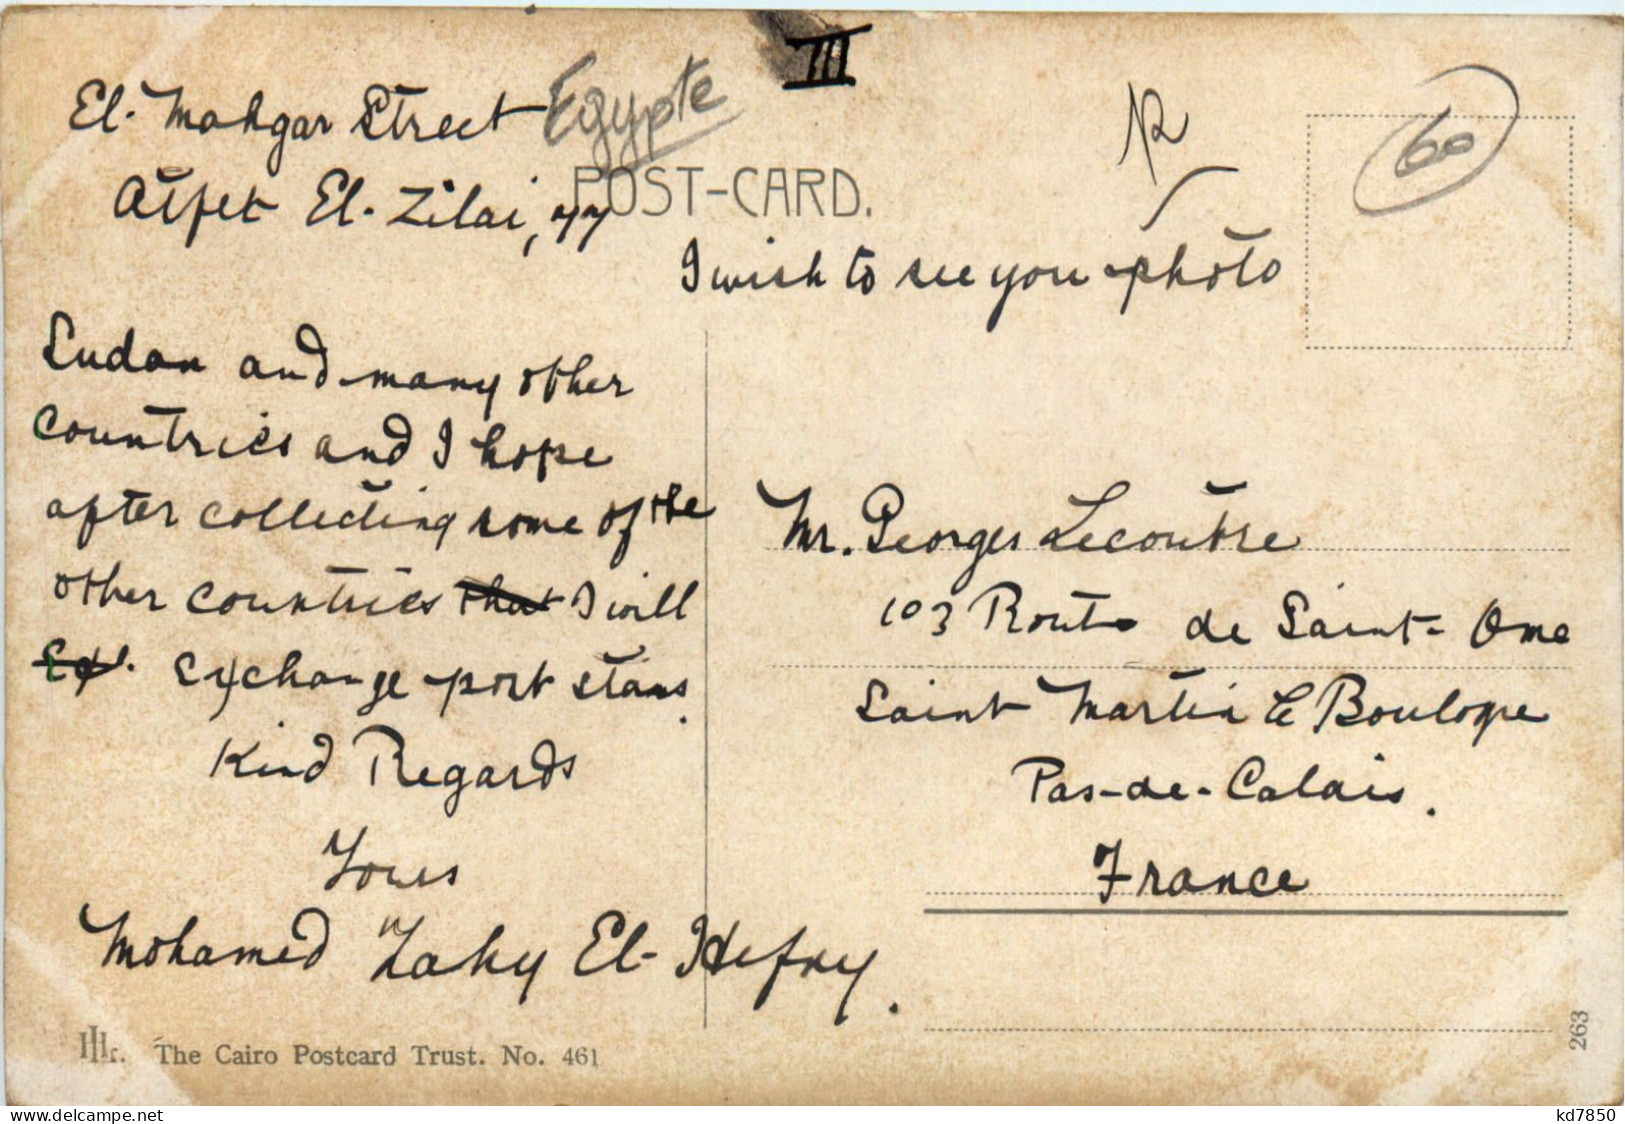 III
El. Mahgar Street Egypte
Atfet El. Zilai, 77
POST-CARD.
60
I wish to see you photo
Sudan and many other
countries and I hope
after collecting some of the
other countries that I will
Ex. Exchange post stams.
Kind Regards
Yours
Mohamed Zaky El-Hefny.
Mr. Georges Lecoutre
103 Route de Saint-Ome
Saint Martin le Boulogne
Pas-de-Calais.
France
The Cairo Postcard Trust. No. 461
263
delcampe.net
kd7850